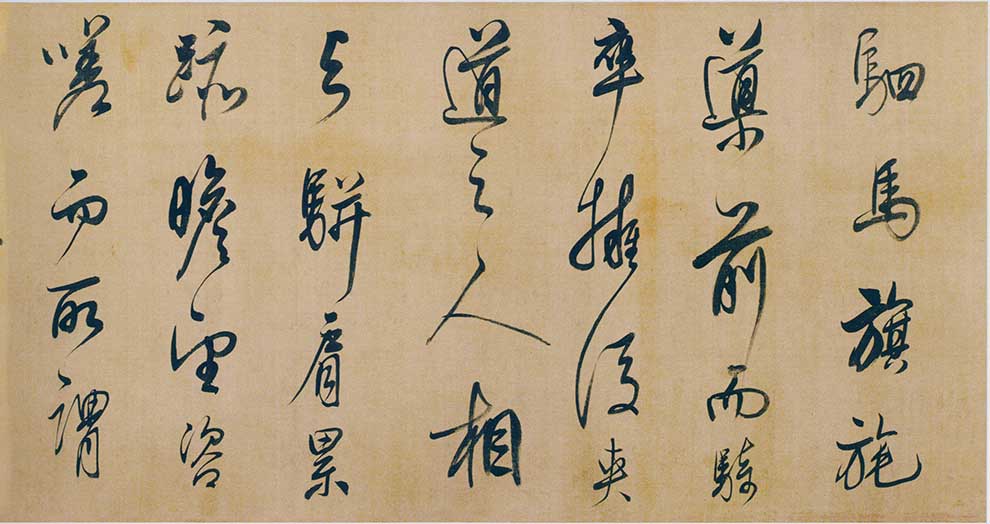 駟馬旗旄
導前而騎
卒擁後夾
道之人相
与駢肩累
跡瞻望咨
嗟而所謂